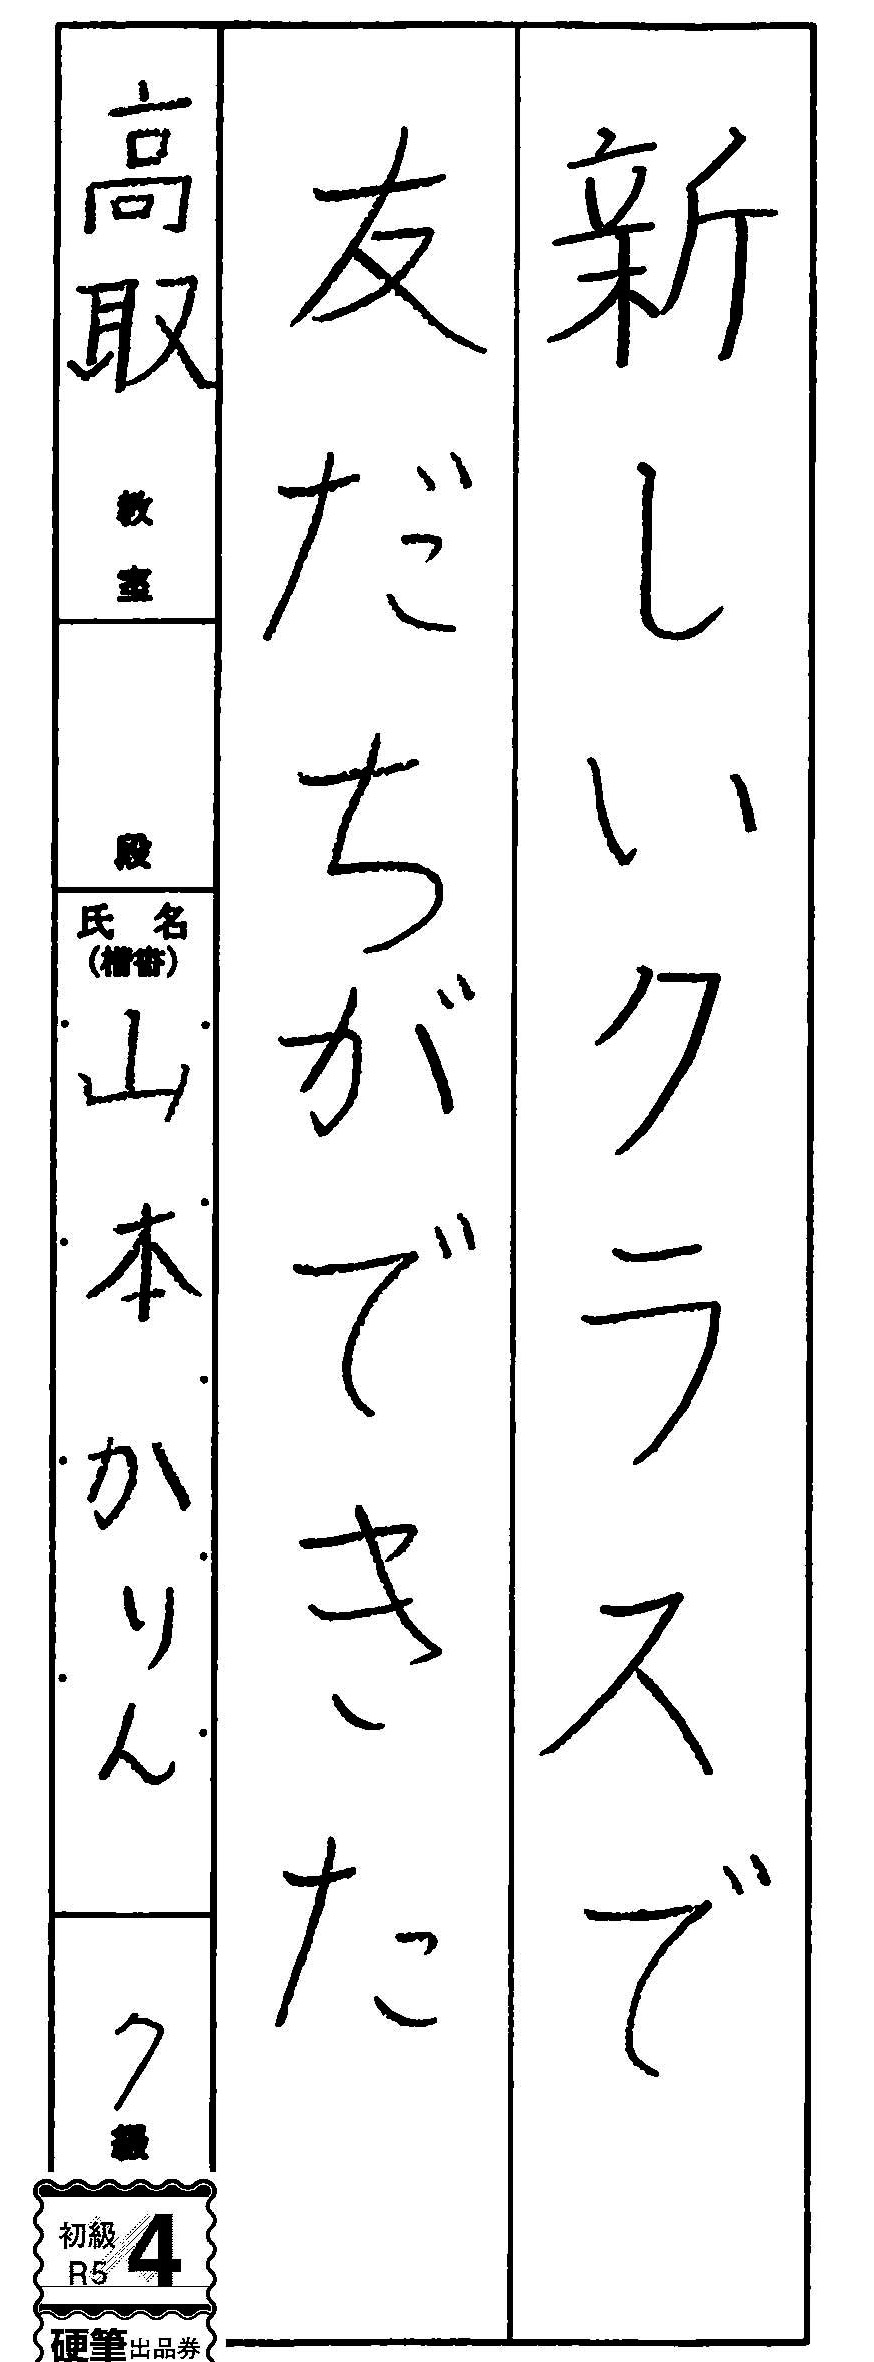 新しいクラスで
友だちができた
高取教室
段
氏名
(楷書)
山本かりん
7級
初級
R5 4
硬筆出品券